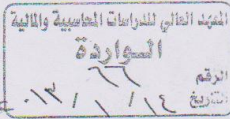 المعهد العالي للدراسات المحاسبية والمالية
الـواردة
الرقم ٦٦
التاريخ ١٤ / ١ / ٠١٣